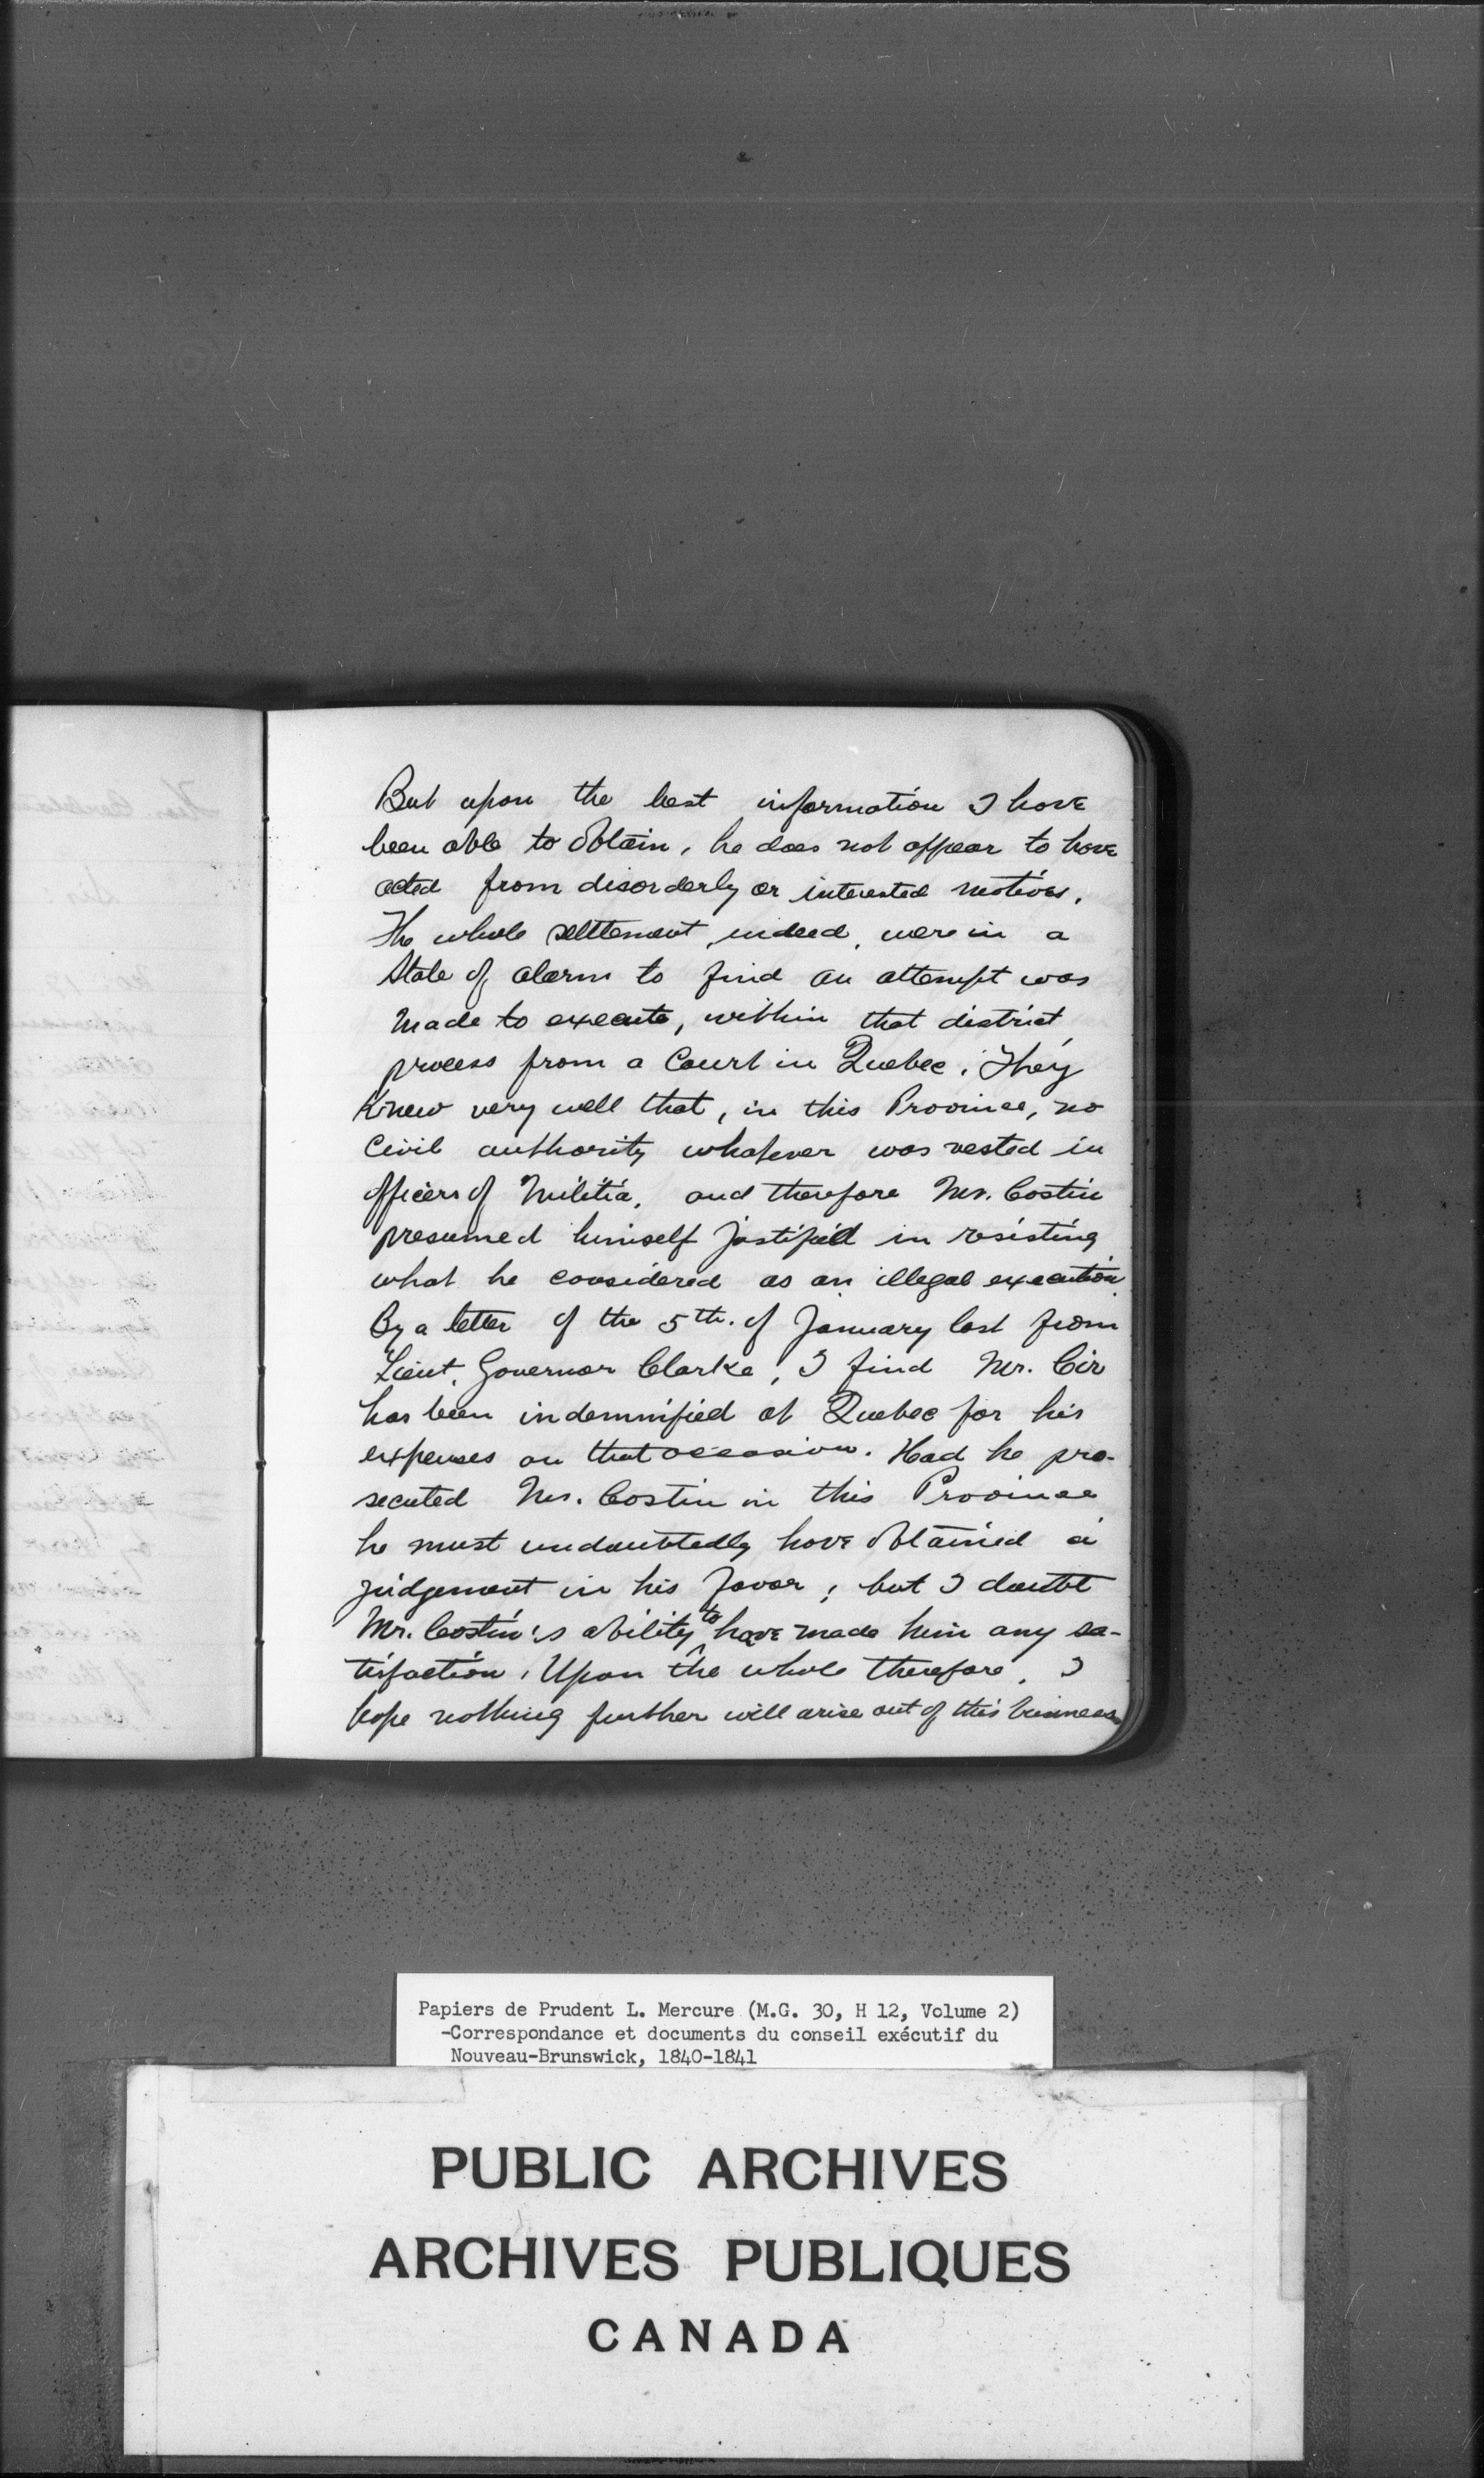 But upon the best information I have
been able to obtain, he does not appear to have
acted from disorderly or interested motives.
The whole settlement, indeed, were in a
State of alarm to find an attempt was
made to execute, within that district,
process from a Court in Quebec. They
knew very well that, in this Province, no
Civil authority whatever was vested in
officers of Militia, and therefore Mr. Costin
presumed himself justified in resisting
what he considered as an illegal execution.
By a letter of the 5th. of January last from
Lieut. Governor Clarke, I find Mr. Cir
has been indemnified at Quebec for his
expenses on that occasion. Had he pro-
secuted Mr. Costin in this Province
he must undoubtedly have obtained a
judgement in his favor; but I doubt
Mr. Costin's ability to have made him any sa-
tisfaction. Upon the whole therefore, I
hope nothing further will arise out of this business
Papiers de Prudent L. Mercure (M.G. 30, H 12, Volume 2)
-Correspondance et documents du conseil exécutif du
Nouveau-Brunswick, 1840-1841
PUBLIC ARCHIVES
ARCHIVES PUBLIQUES
CANADA